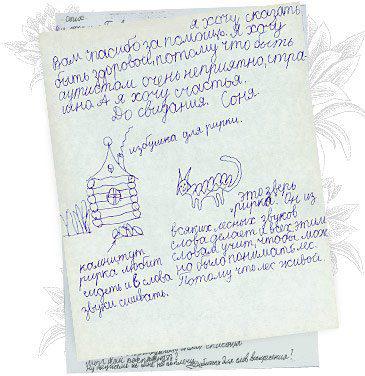 я хочу сказать
Вам спасибо за помощь. Я хочу
быть здоровой, потому что быть
аутистом очень неприятно, стра-
шно. А я хочу счастья.
До свидания. Соня.
избушка для рирки.
Это зверь
рирка. Он из
всяких лесных звуков
слова делает и всех этим
словам учит, чтобы мож
но было понимать лес.
Потому что лес живой.
камни тут
рирка любит
сидеть и в слова
звуки сшивать.